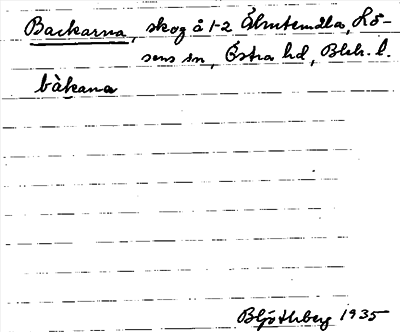 Backarna, skog å 1-2 Elmtemåla, Lö-
sens sn, Östra hd, Blek. l.
bàkana
Bg Öhberg 1935